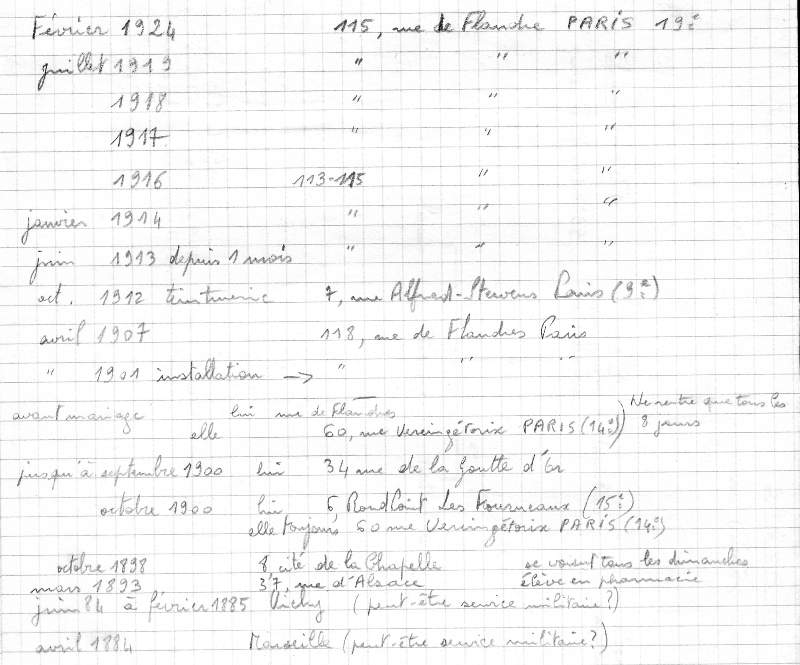 Février 1924 115, rue de Flandre PARIS 19e
juillet 1919 " " "
1918 " " "
1917 " " "
1916 113-115 " "
janvier 1914 " " "
juin 1913 depuis 1 mois " " "
oct. 1912 teinturerie 7, rue Alfred-Stevens Paris (9e)
avril 1907 118, rue de Flandres Paris
" 1901 installation → " " "
avant mariage lui rue de Flandres Ne rentre que tous les
elle 60, rue Vercingétorix PARIS (14e) 8 jours
jusqu'à septembre 1900 lui 34 rue de la Goutte d'Or
octobre 1900 lui 6, Rond Point Les Fourneaux (15e)
elle toujours 60 rue Vercingétorix PARIS (14e)
octobre 1898 8 cité de la Chapelle se voient tous les dimanches
mars 1893 37, rue d'Alsace élève en pharmacie
juin 84 à février 1885 Vichy (peut-être service militaire?)
avril 1884 Marseille (peut-être service militaire?)